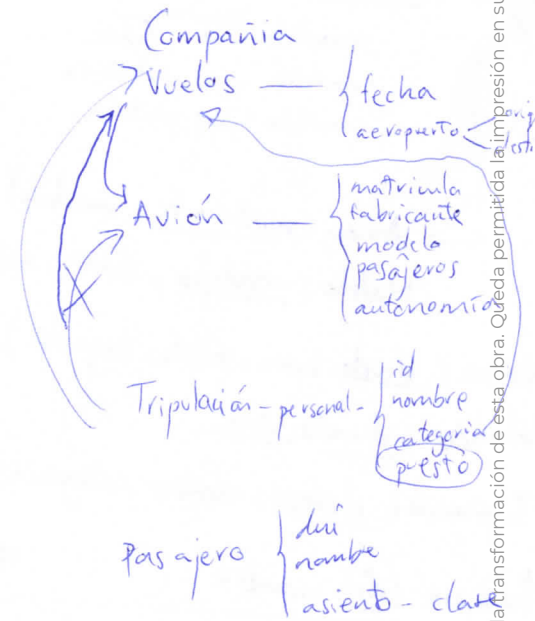 Compañia
Vuelos
fecha
aeropuerto
Avión
matricula
fabricante
modelo
pasajeros
autonomía
Tripulación - personal -
id
nombre
categoria
puesto
Pasajero
dni
nombre
asiento - clase
la transformación de esta obra. Queda permitida la impresión en su